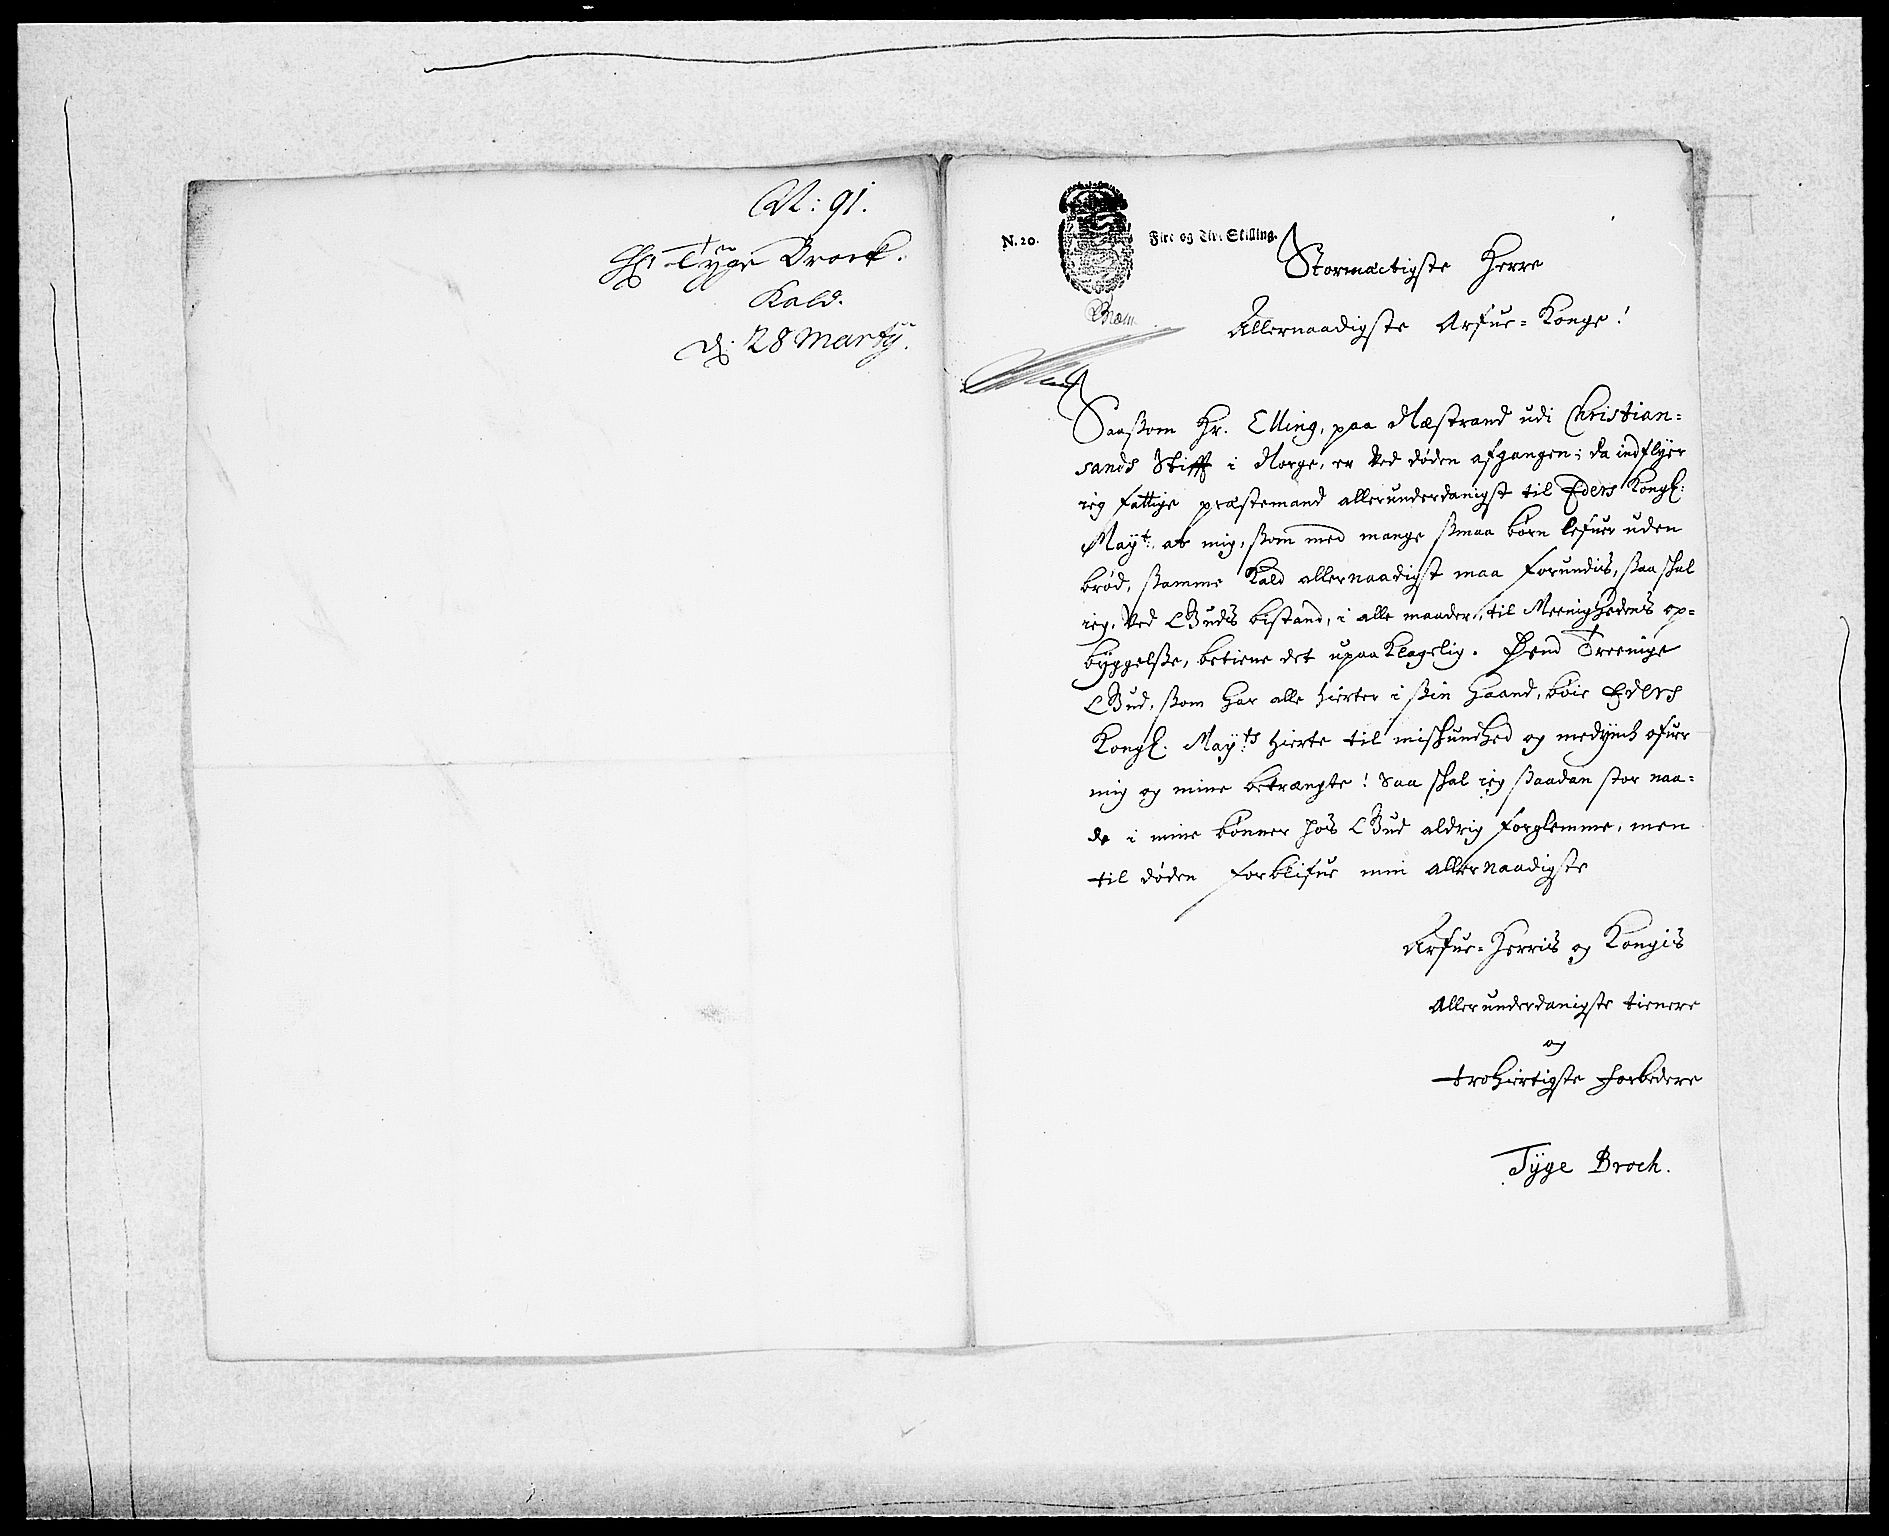 N: 91.
Hr Tyge Brock.
Kald.
d. 28 Martij.
N. 20. Fire og Tive Skilling.
Stormectigste Herre
Allernaadigste Arfue-Konge!
Saassom Hr. Elling, paa Næstrand udi Christian=
sands Stifft i Norge, er ved døden afgangen; da indflyer
ieg fattige præstemand allerunderdanigst til Eders Kongl:
Mayt: at mig, ssom med mange ssmaa børn lefuer uden
brød, ssamme Kald allernaadigst maa forundis, ssaa skal
ieg, ved Guds bistand, i alle maader, til Meenighedens op=
byggelsse, betiene det upaaklagelig. Dend Treenige
Gud, ssom har alle hierter i ssin haand, bøie Eders
Kongl. Mayts hierte til miskundhed og medynck ofuer
mig og mine betrængte! Saa skal ieg ssaadan stor naa=
de i mine bønner hos Gud aldrig forglemme, men
til døden forblifue min allernaadigste
Arfue-Herris og Kongis
Allerunderdanigste tienere
og
trohiertigste forbedere
Tyge Broch.